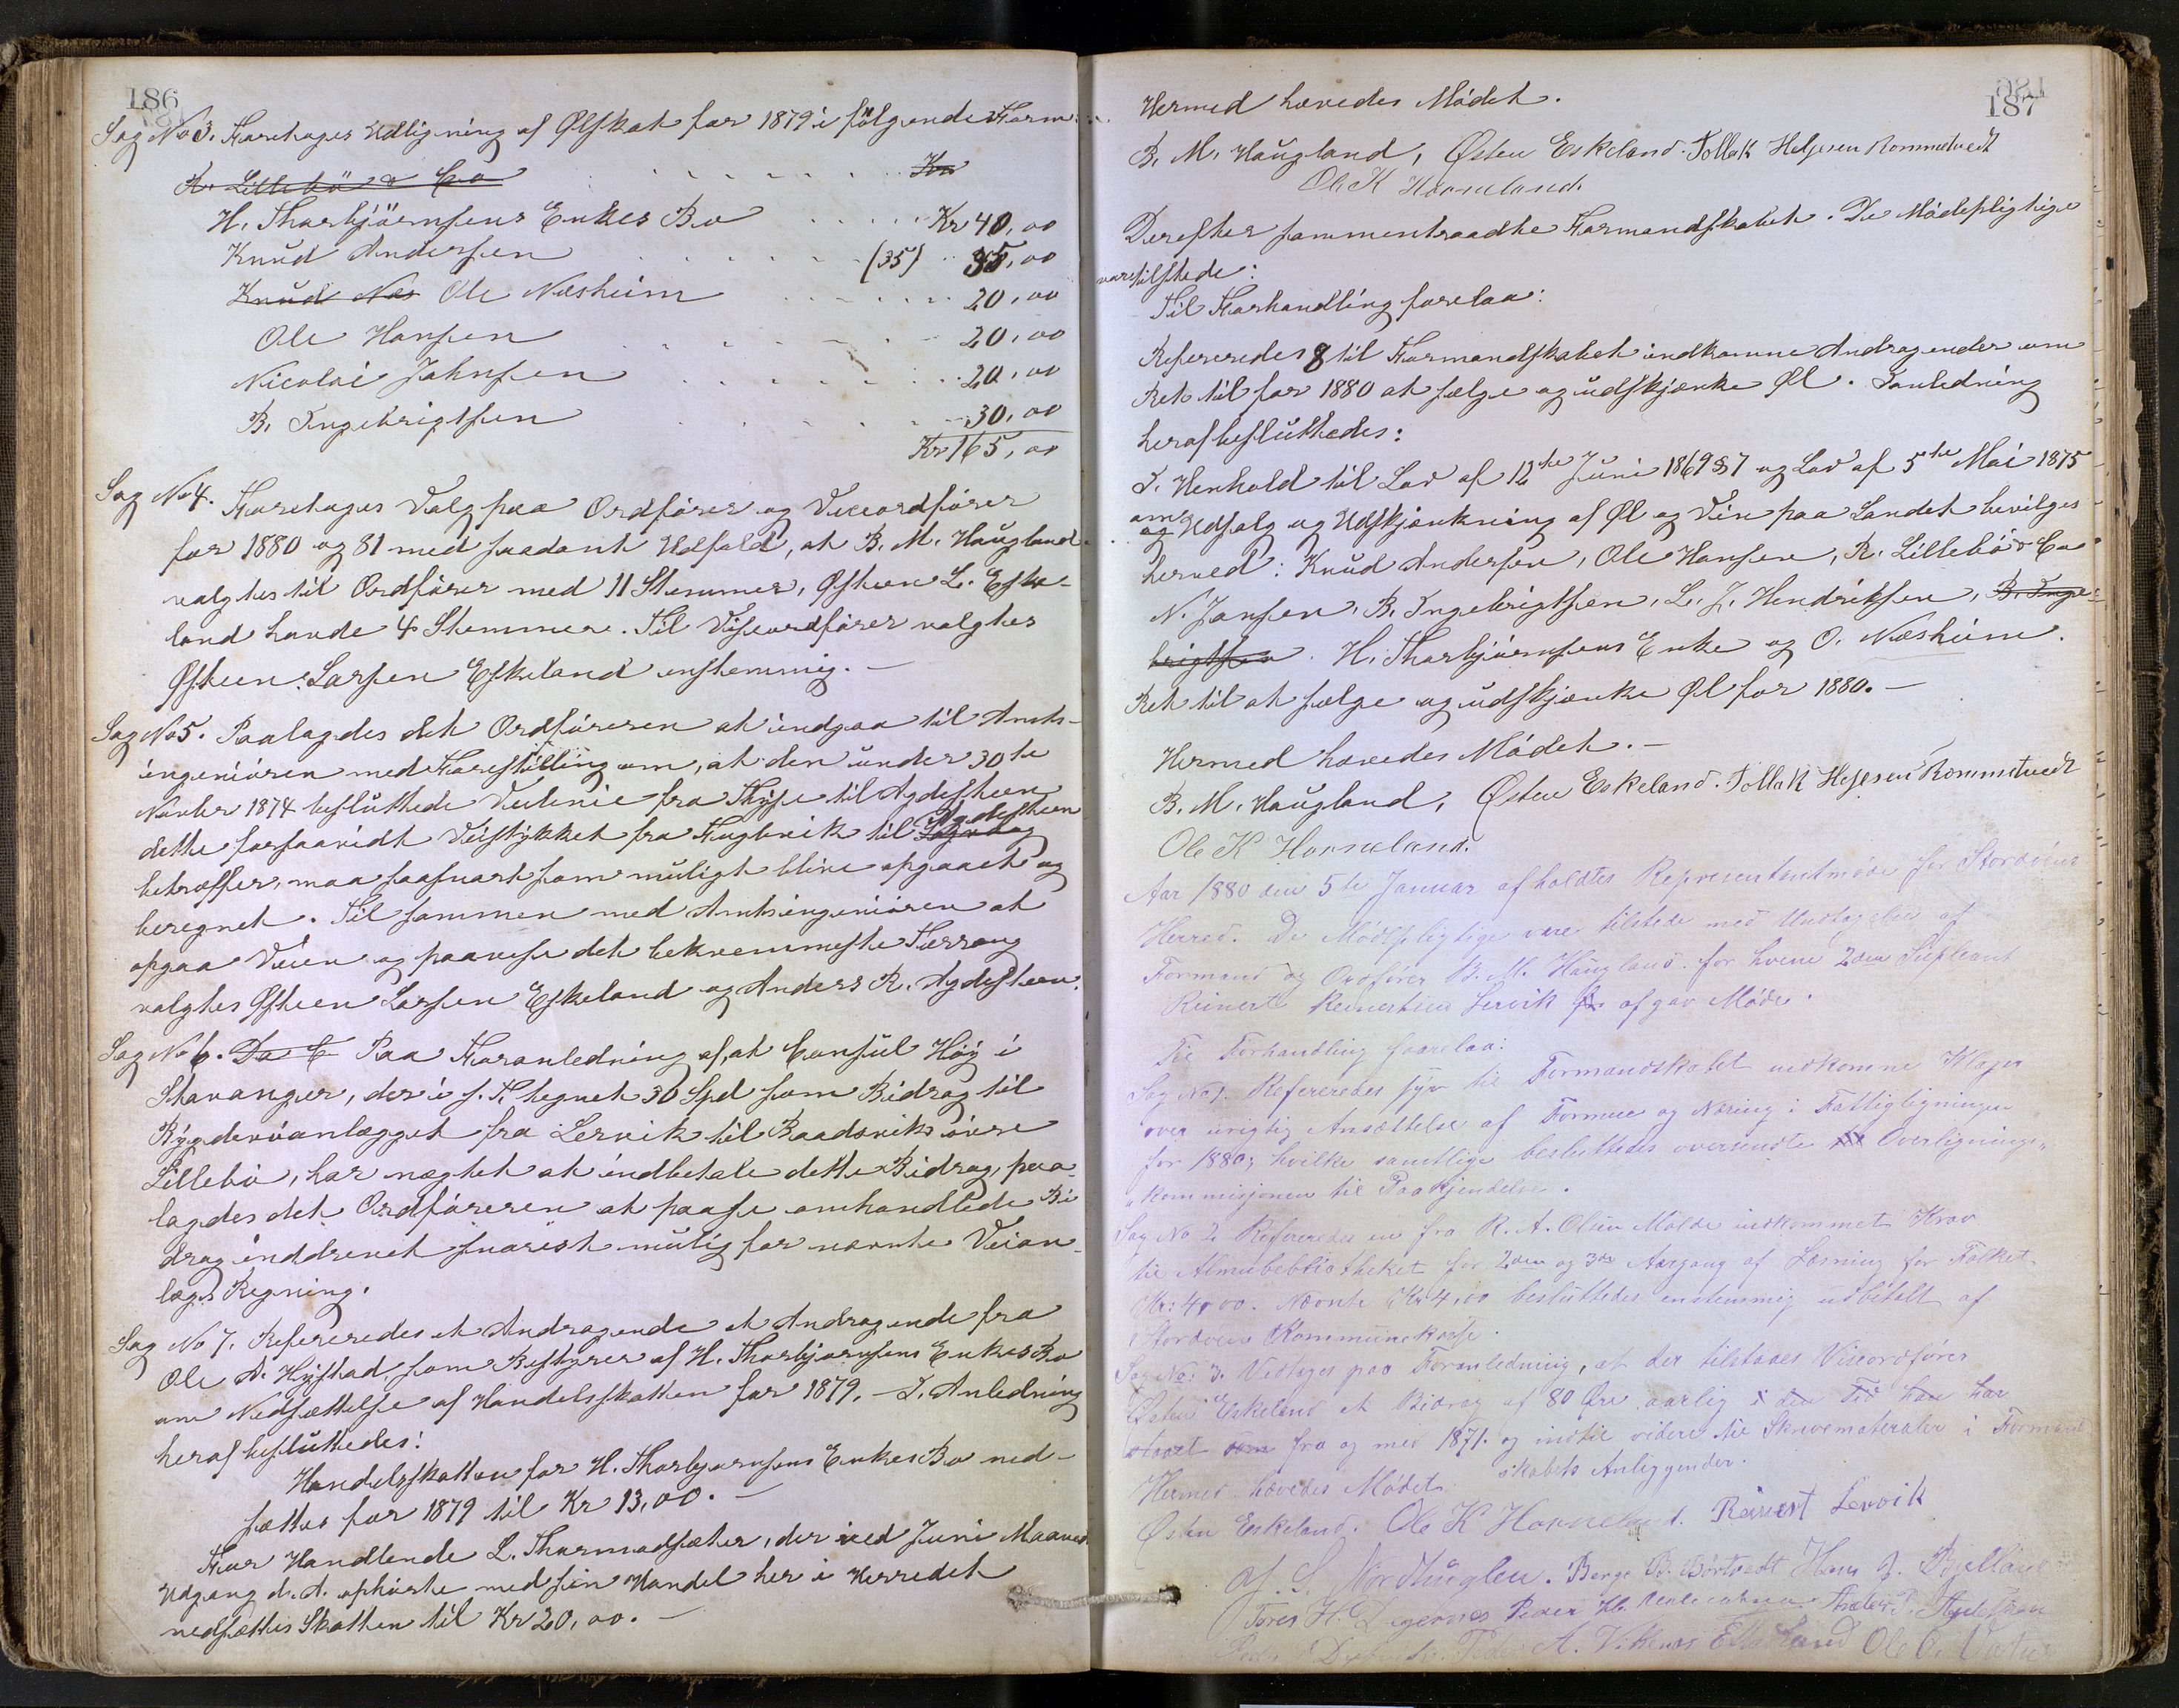 186
Sag No 3. Foretoges Udligning af Ølskat for 1879 i følgende Form:
R. Lillebø & Co . . . . . . . Kr
H. Thorbjørnsens Enkes Bo . . . . . Kr 40,00
Knud Andersen . . . . . . (35) . . 35,00
Knud Næs Ole Næsheim . . . . . . 20,00
Ole Hansen . . . . . . 20,00
Nicolai Jahnsen . . . . . . . 20,00
B. Ingebrigtsen . . . . . . 30,00
Kr 165,00
Sag No 4. Foretoges Valg paa Ordfører og Viceordfører
for 1880 og 81 med saadant Udfald, at B. M. Haugland
valgtes til Ordfører med 11 Stemmer, Østeen L. Eske-
land havde 4 Stemmer. Til Viseordfører valgtes
Østeen Larsen Eskeland enstemmig. —
Sag No 5. Paalagdes det Ordføreren at indgaa til Amts-
ingeniøren med Forestilling om, at den under 30te
Novbr 1874 besluttede Veilinie fra Thyse til Agdesteen
dette forsaavidt Veistykket fra Fuglevik til Agdesteen
betræffer, maa saasnart som muligt blive opgaaet og
beregnet. Til sammen med Amtsingeniøren at
opgaa Veien og paavise det bekvemmeste Terræng
valgtes Østeen Larsen Eskeland og Anders R. Agdesteen.
Sag No 6. Da C Paa Foranledning af, at Consul Høy i
Stavanger, der i s. T. tegnet 30 Spd som Bidrag til
Bygdeveianlægget fra Lervik til Raadsviks øvre
Lillebø, har nægtet at indbetale dette Bidrag, paa-
lagdes det Ordføreren at paase omhandlede Bi
drag inddrevet snarest mulig for nævnte Veian-
lægs Regning.
Sag No 7. Refereredes et Andragende et Andragende fra
Ole A. Hystad, som Bestyrer af H. Thorbjørnsens Enkes Bo
om Nedsættelse af Handelsskatten for 1879. — I Anledning
heraf besluttedes:
Handelsskatten for H. Thorbjørnsens Enkes Bo ned-
sættes for 1879 til Kr 13,00. —
For Handlende L. Thormodsæter, der ved Juni Maaned
Udgang d. A. ophørte med sin Handel her i Herredet
nedsættes Skatten til Kr 20,00. —
187
Hermed hævedes Mødet.
B. M. Haugland, Østen Eskeland. Tollak Helgesen Rommetvedt
Ole K Horneland.
Derefter sammentraadte Formandskabet. De Mødepligtige
vare tilstede:
Til Forhandling forelaa:
Refereredes 8 til Formandskabet indkomne Andragender om
Ret til for 1880 at sælge og udskjænke Øl. I Anledning
heraf besluttedes:
I Henhold til Lov af 12te Juni 1869 § 7 og Lov af 5te Mai 1875
om Udsalg og Udskjænkning af Øl og Vin paa Landet bevilges
herved: Knud Andersen, Ole Hansen, R. Lillebø & Co
N. Jansen, B. Ingebrigtsen, L. J. Hendriksen, B. Inge-
brigtsen. H. Thorbjørnsens Enke og O. Næsheim.
Ret til at sælge og udskjænke Øl for 1880. —
Hermed hævedes Mødet. —
B. M. Haugland, Østen Eskeland. Tollak Helgesen Rommetvedt
Ole K Horneland.
Aar 1880 den 5te Januar afholdtes Representantmøde for Stordøens
Herred. De Mødepligtige vare tilstede med Undtagelse af
Formand og Ordfører B. M. Haugland for hvem 2den Supleant
Reinert Reinertsen Lervik afgav Møde.
Til Forhandling forelaa:
Sag No 1. Refereredes syv til Formandskabet indkomne Klager
over urigtig Ansættelse af Formue og Næring i Fattigligningen
for 1880; hvilke samtlige besluttedes oversendte Overlignings-
kommisjonen til Paakjendelse.
Sag No 2 Refereredes en fra R. A. Olsen Molde indkommet Krav
til Almubebliotheket for 2den og 3die Aargang af Læsning for Folket
Kr: 4,00. Nævnte Kr 4,00 besluttedes enstemmig udbetalt af
Stordøens Kommunekasse.
Sag No: 3. Vedtoges paa Foranledning, at der tilstaaes Viceordfører
Østen Eskeland et Bidrag af 80 Øre aarlig i den Tid han har
fra og med 1871. og indtil videre til Skrivemateraler i Formand
skabets Anliggender.
Hermed hævedes Mødet
Østen Eskeland. Ole K Horneland. Reinert Lervik
Nordhuglen. Børge B. Børtvedt Hans J.
Tores H. Digernes Peder Anders P. Agdesteen
A. Vikenes Ole O.